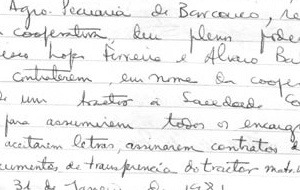 Agro-Pecuária de Barcouço,
cooperativa, deu plenos poder
Lopes Ferreira e Alvaro Ba
contraterem, em nome da cooper
de um tractor à Sociedade Co
para assumirem todos os encarg
aceitarem letras, assinarem contratos d
cumentos de transferencia do tractor
31 de Janeiro de 1981